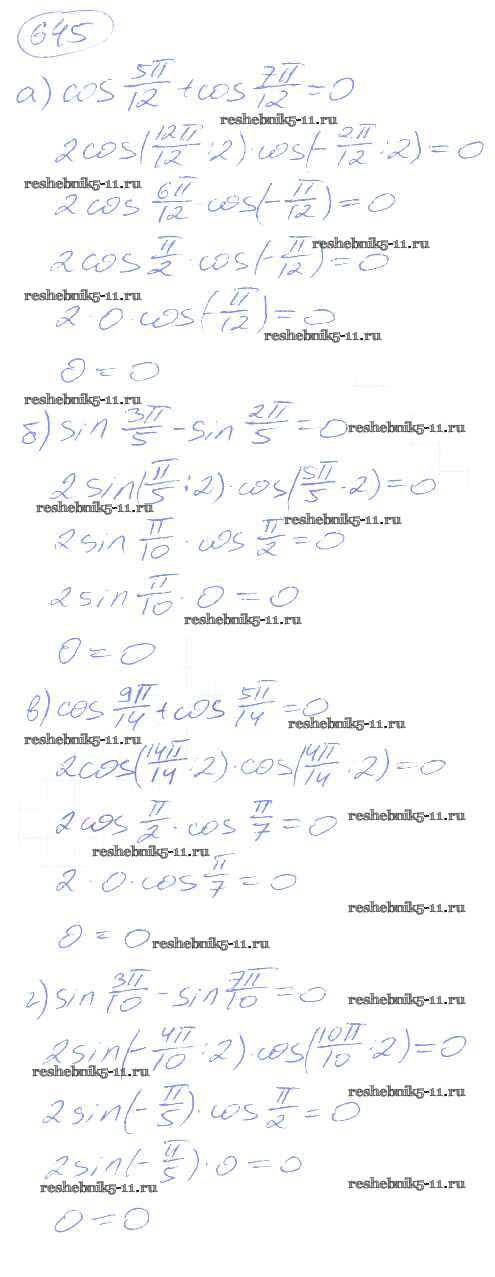 645
а) cos 5π/12 + cos 7π/12 = 0
reshebnik5-11.ru
2cos(12π/12 : 2) · cos(- 2π/12 : 2) = 0
reshebnik5-11.ru
2 cos 6π/12 · cos(- π/12) = 0
reshebnik5-11.ru
2cos π/2 · cos(- π/12) = 0
reshebnik5-11.ru
2 · 0 · cos(- π/12) = 0
reshebnik5-11.ru
0 = 0
reshebnik5-11.ru
б) sin 3π/5 - sin 2π/5 = 0
reshebnik5-11.ru
2 sin(π/5 : 2) · cos(5π/5 · 2) = 0
reshebnik5-11.ru
reshebnik5-11.ru
2sin π/10 · cos π/2 = 0
2sin π/10 · 0 = 0
reshebnik5-11.ru
0 = 0
в) cos 9π/14 + cos 5π/14 = 0
reshebnik5-11.ru
reshebnik5-11.ru
2cos(14π/14 : 2) · cos(4π/14 · 2) = 0
2cos π/2 · cos π/7 = 0
reshebnik5-11.ru
reshebnik5-11.ru
2 · 0 · cos π/7 = 0
reshebnik5-11.ru
0 = 0
reshebnik5-11.ru
г) sin 3π/10 - sin 7π/10 = 0
reshebnik5-11.ru
2sin(- 4π/10 : 2) · cos(10π/10 · 2) = 0
reshebnik5-11.ru
reshebnik5-11.ru
2sin(- π/5) · cos π/2 = 0
2sin(- π/5) · 0 = 0
reshebnik5-11.ru
reshebnik5-11.ru
0 = 0